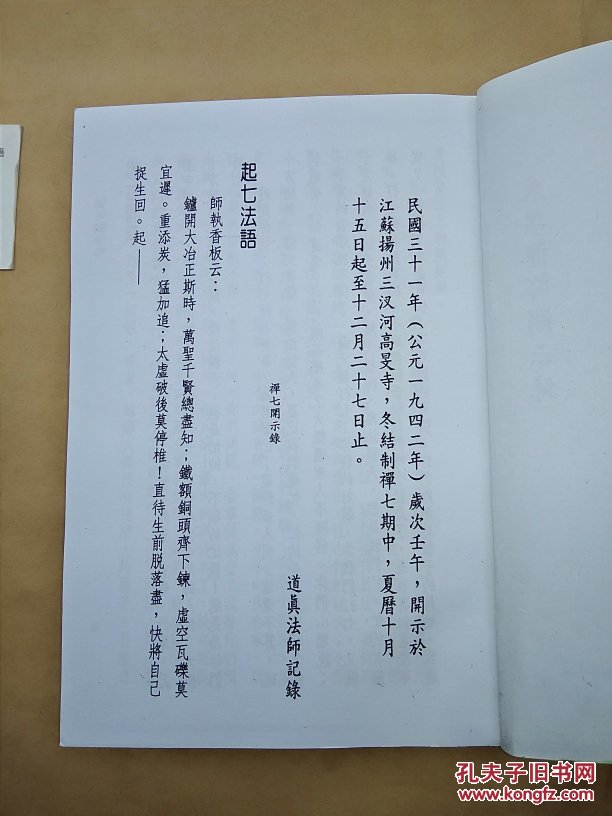 民國三十一年(公元一九四二年)歲次壬午,開示於
江蘇揚州三汊河高旻寺,冬結制禪七期中,夏曆十月
十五日起至十二月二十七日止。
道眞法師記錄
禪七開示錄
起七法語
師執香板云:
鑪開大冶正斯時,萬聖千賢總盡知;鐵額銅頭齊下鍊,虛空瓦礫莫
宜遲。重添炭,猛加追;太虛破後莫停椎!直待生前脫落盡,快將自己
捉生回。起——
孔夫子旧书网
www.kongfz.com